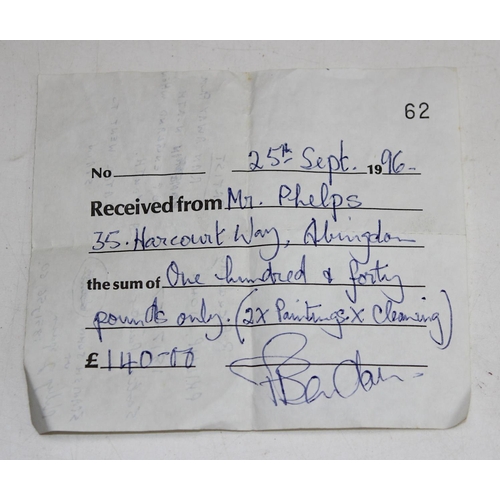 62
No 25th Sept. 1996-
Received from Mr. Phelps
35. Harcourt Way, Abingdon
the sum of One hundred & forty
pounds only. (2x Paintings x Cleaning)
£ 140-00